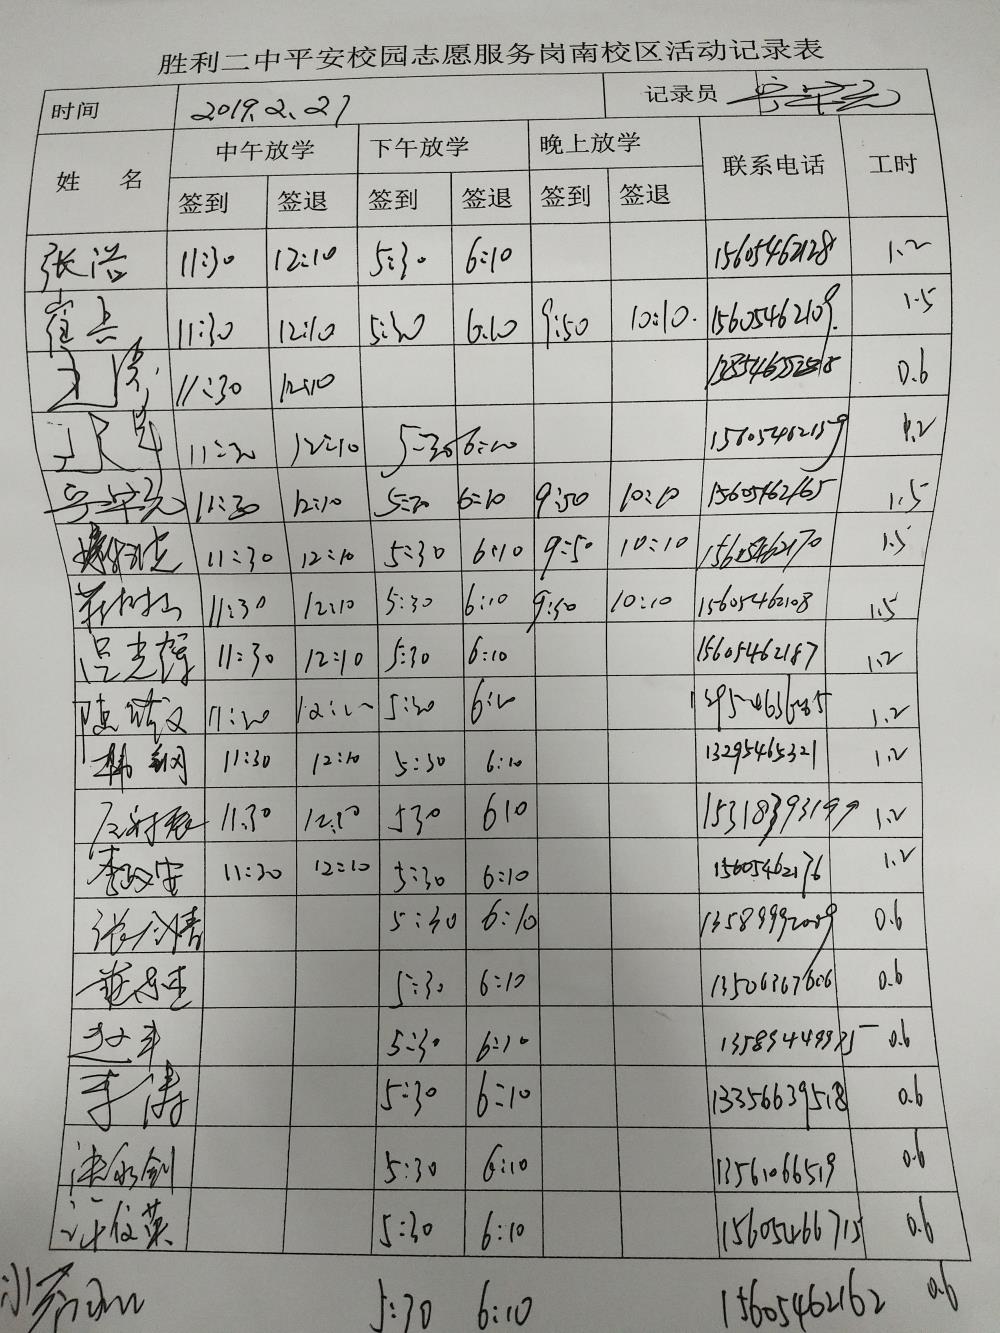 胜利二中平安校园志愿服务岗南校区活动记录表
时间 2019.2.27 记录员
姓 名 中午放学 下午放学 晚上放学 联系电话 工时
签到 签退 签到 签退 签到 签退
张浩 11:30 12:10 5:30 6:10 15605462128 1.2
崔点 11:30 12:10 5:30 6:10 9:50 10:10. 15605462109 1.5
11:30 12:10 0.6
11:30 12:10 5:30 6:10 15605462159 1.2
11:30 12:10 5:30 6:10 9:50 10:10 15605462165 1.5
11:30 12:10 5:30 6:10 9:50 10:10 15605462170 1.5
11:30 12:10 5:30 6:10 9:50 10:10 15605462108 1.5
吕光辉 11:30 12:10 5:30 6:10 15605462187 1.2
11:30 12:10 5:30 6:10 1.2
韩钢 11:30 12:10 5:30 6:10 13295465321 1.2
11:30 12:10 530 610 15318393199 1.2
李政安 11:30 12:10 5:30 6:10 15605462176 1.2
5:30 6:10 13589992009 0.6
5:30 6:10 13506367606 0.6
赵军 5:30 6:10 0.6
李涛 5:30 6:10 13356639518 0.6
5:30 6:10 13561066519 0.6
5:30 6:10 15605466715 0.6
5:30 6:10 15605462162 0.6